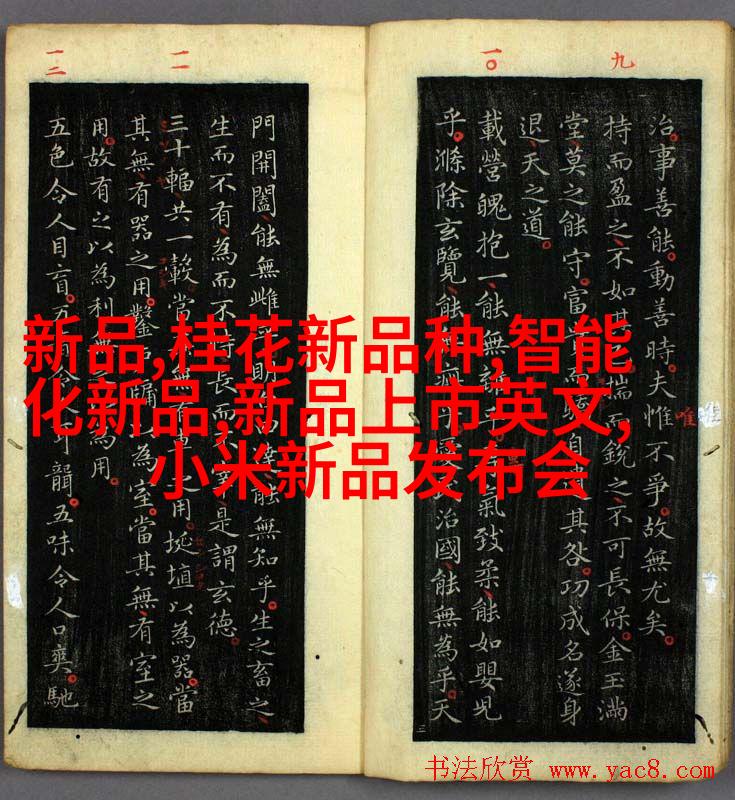 九
治事善能。動善時。夫惟不爭。故無尤矣。
唯
持而盈之不如其已。揣而銳之不可長保。金玉滿
堂莫之能守。富而驕自其咎。功成名遂身
退天之道。
一〇
載營魄抱一能無離乎。氣致柔能如嬰兒
乎。滌除玄覽能治國能無為乎。天
門開闔能無雌能無知乎。生之畜之
生而不有為而不恃長而不是謂玄德。
一一
三十輻共一轂當無之用。埏埴以為器當
其無有器之用。鑿戶牖以為室。當其無有室之
用。故有之以為利無為用。
一二
五色令人目盲。五令人耳聾。五味令人口爽。馳
新品,桂花新品种,智能
化新品,新品上市英文,
小米新品发布会
书法欣赏 www.yac8.com